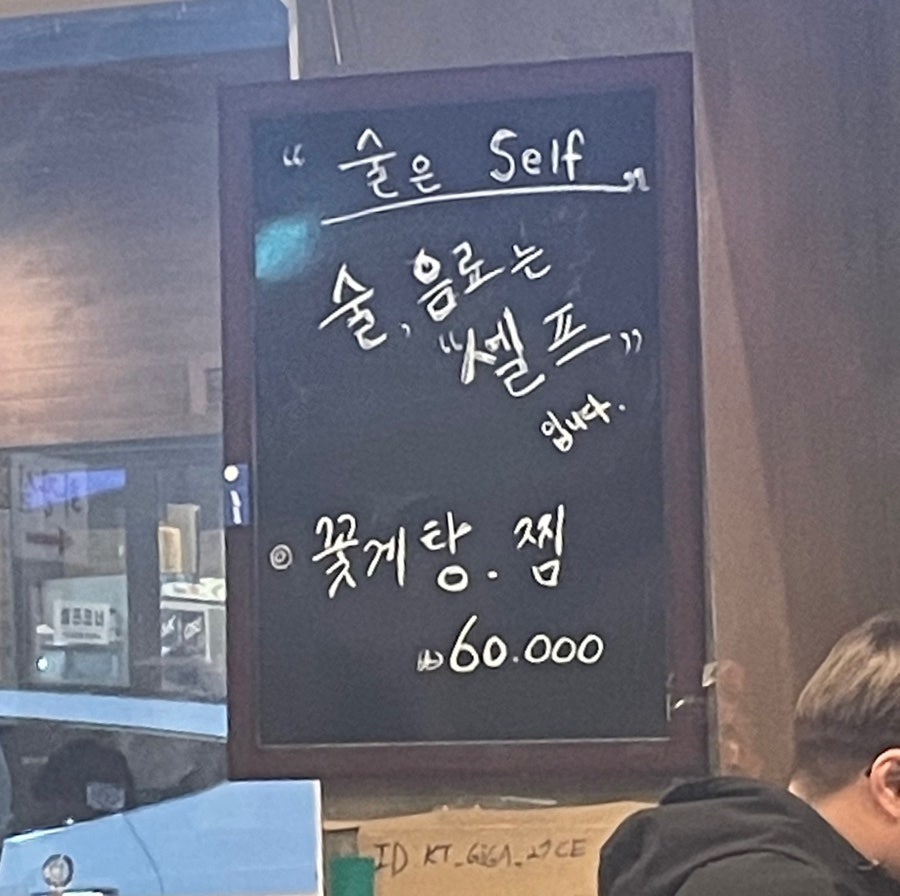 “ 술은 Self ”
술, 음료는
“셀프”
입니다.
◎ 꽃게탕. 찜
₩60.000
셀프코너
ID KT_GiGA_29CE